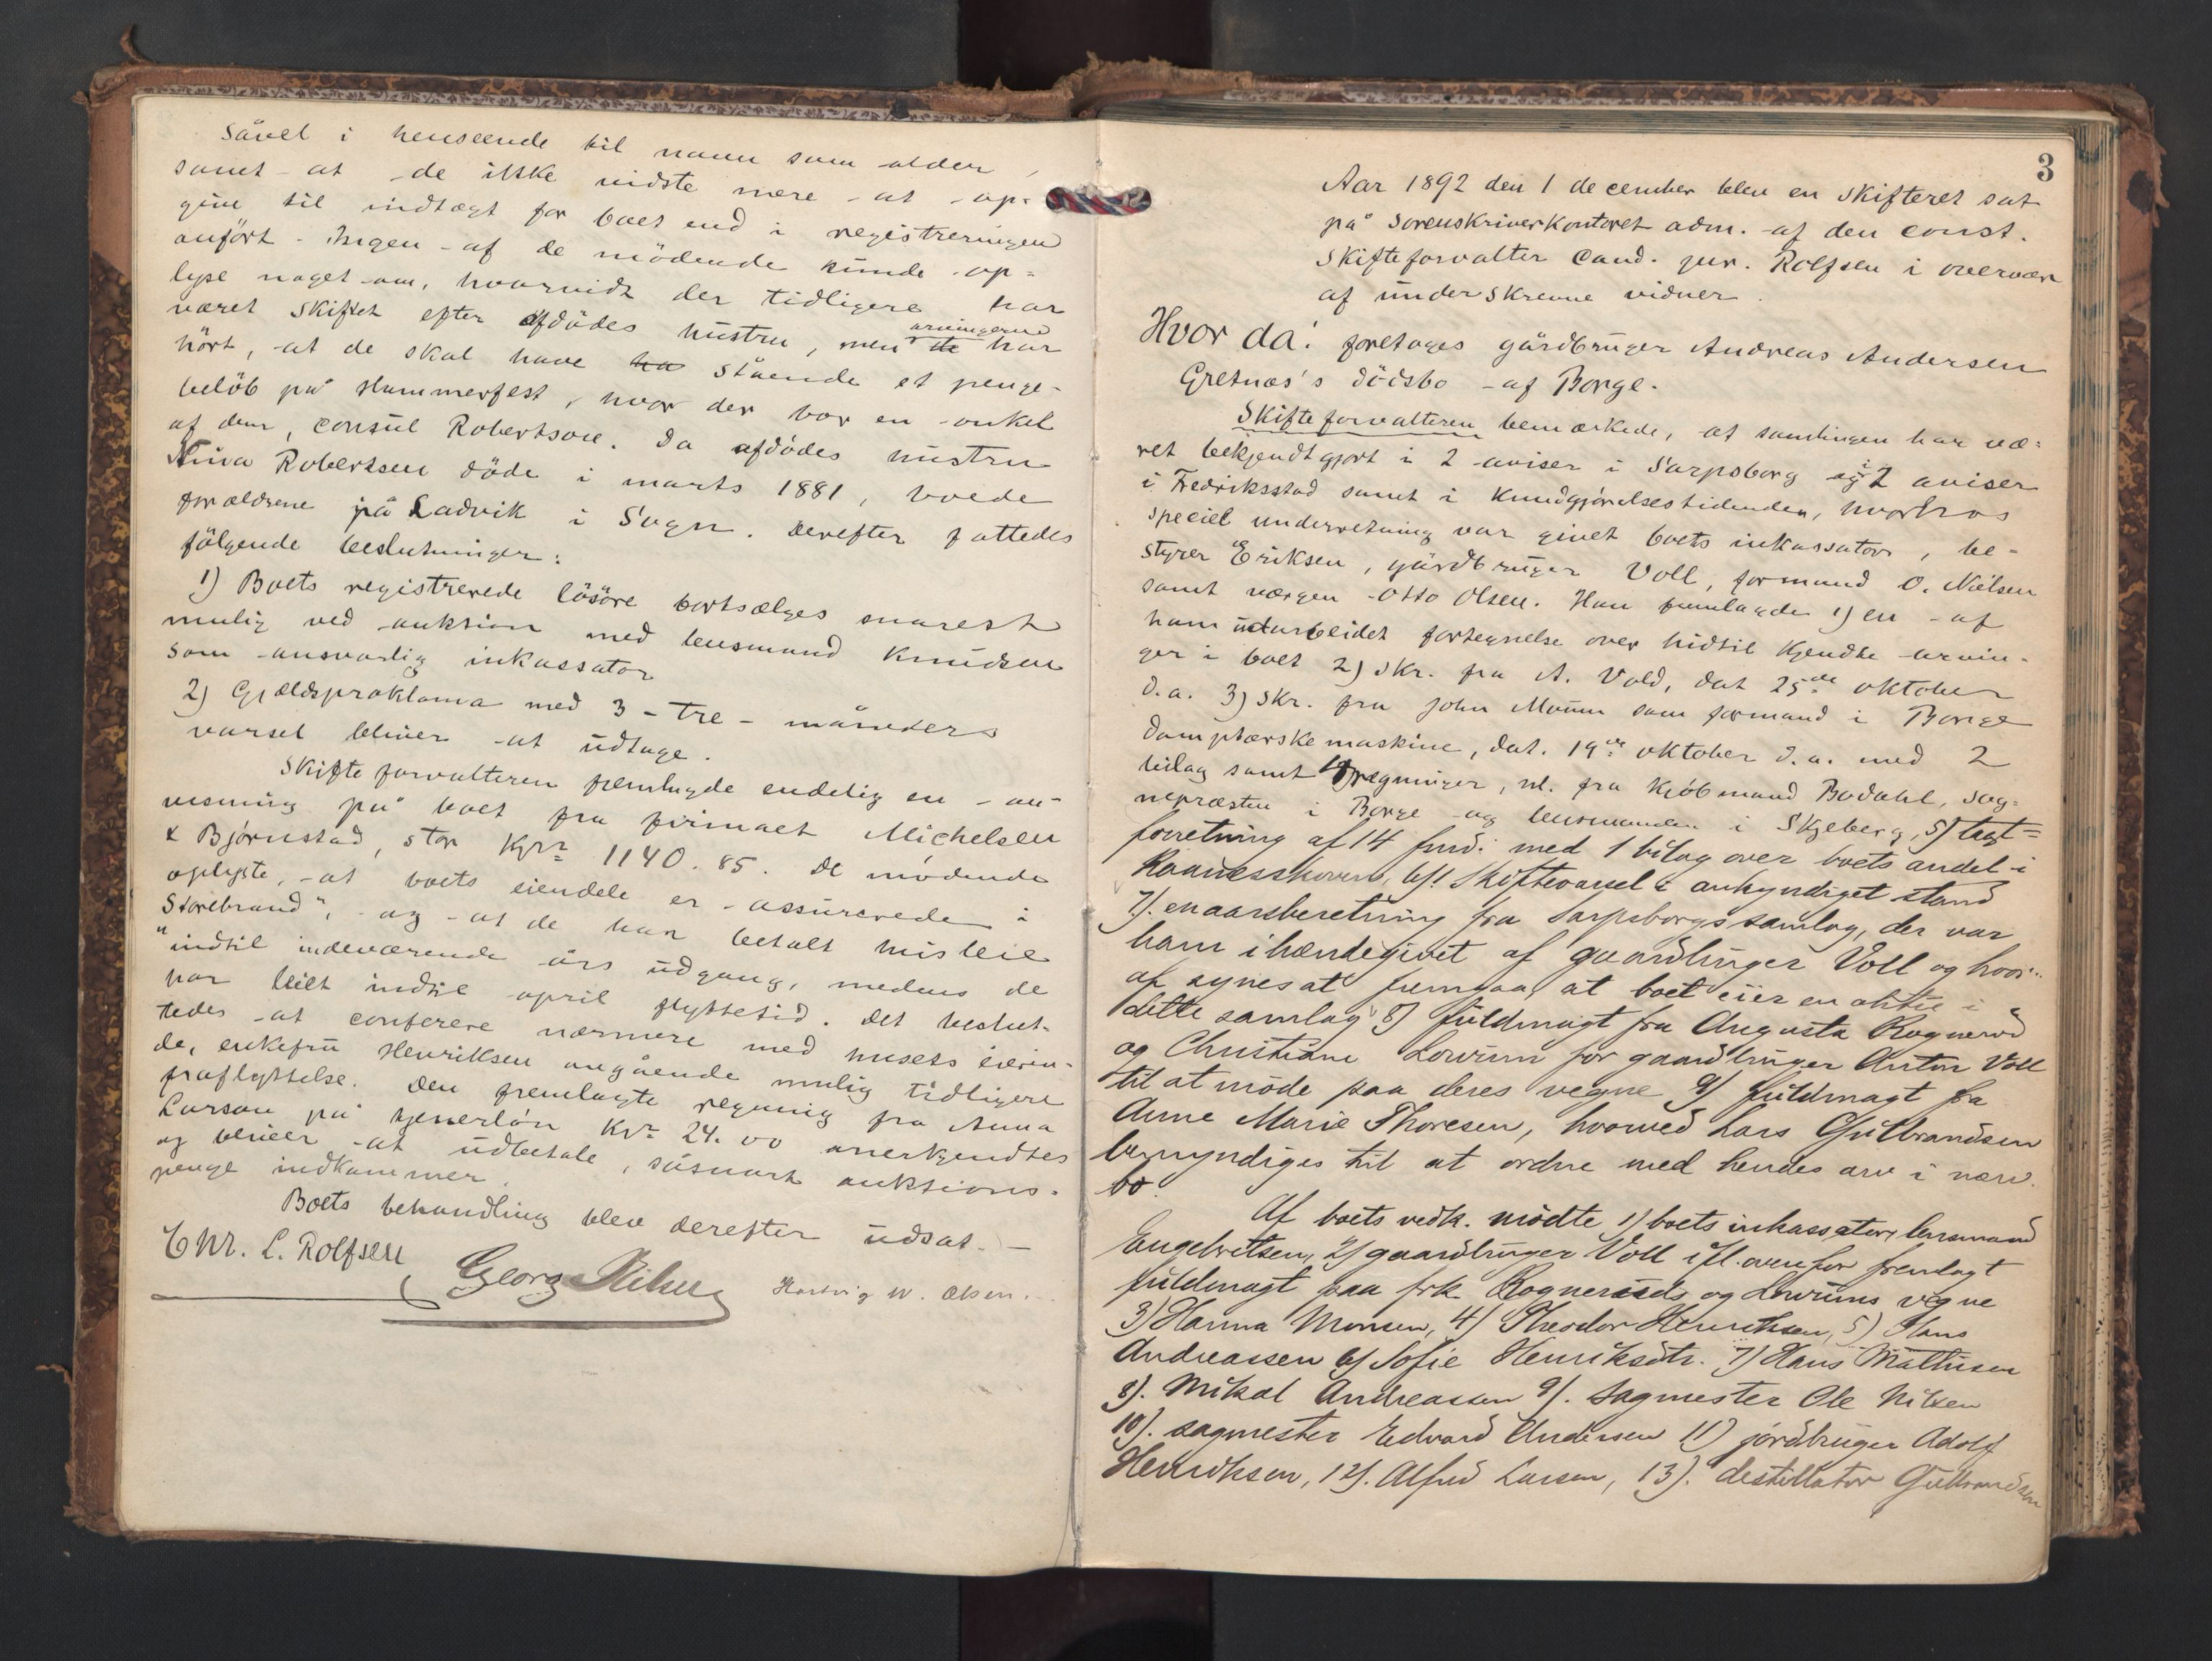 såvel i henseende til navn som alder,
samt at de ikke vidste mere at op-
give til indtægt for boet end i registreringen
anført. Ingen af de mødende kunde op=
lyse noget om, hvorvidt der tidligere har
været skiftet efter afdødes hustru, men de arvingerne har
hørt, at de skal have ha stående et penge-
beløb på Hammerfest, hvor der bor en onkel
af dem, consul Robertson. Da afdødes hustru
Robertsen døde i marts 1881, boede
forældrene på Ladvik i Sogn. Derefter fattedes
følgende beslutninger:
1) Boets registrerede løsøre bortsælges snarest
mulig ved auktion med lensmand Knudsen
som ansvarlig inkassator
2) Gjældsproklama med 3 - tre - måneders
varsel bliver at udtage.
Skifteforvalteren fremlagde endelig en an-
visning på boet fra firmaet Michelsen
& Bjørnstad, stor Kr. 1140.85. De mødende
oplyste, at boets eiendele er assurerede i
"Storebrand", og at de har betalt husleie
indtil indeværende års udgang, medens de
har leiet indtil april flyttetid. Det beslut-
tedes at conferere nærmere med husets eierin-
de, enkefru Henriksen angående mulig tidligere
fraflyttelse. Den fremlagte regning fra Anna
Larsen på tjenerløn Kr. 24.00 anerkjendtes
og bliver at udbetale, såsnart auktions-
penge indkommer.
Boets behandling blev derefter udsat. —
Chr. L. Rolfsen
Georg Hartvig W. Olsen.
3
Aar 1892 den 1 december blev en skifteret sat
på sorenskriverkontoret adm. af den const.
skifteforvalter cand. jur. Rolfsen i overvær
af underskrevne vidner.
Hvor da: foretoges gårdbruger Andreas Andersen
Gretnæs's dødsbo af Borge.
Skifteforvalteren bemærkede, at samlingen har væ=
ret bekjendtgjort i 2 aviser i Sarpsborg og i 2 aviser
i Fredriksstad samt i Kundgjørelsestidenden, hvorhos
speciel underretning var givet boets inkassator, be-
styrer Eriksen, gårdbruger Voll, formand O. Nielsen
samt værgen Otto Olsen. Han fremlagde 1) en af
ham udarbeidet fortegnelse over hidtil kjendte arvin-
ger i boet 2) skr. fra A. Vold, dat 25de oktober
d.a. 3) skr. fra John Moum som formand i Borge
damptærskemaskine, dat. 19de oktober d.a. med 2
bilag samt 4) regninger, nl. fra kjøbmand Bodahl, sog=
nepræsten i Borge og lensmanden i Skjeberg, 5) taxt=
forretning af 14 med 1 bilag over boets andel i
6) Skiftevarsel i ankyndiget stand
7). en aarsberetning fra Sarpsborgs samlag, der var
ham ihændegivet af gaardbruger Voll og hvor-
af synes at fremgaa, at boet eier en aktie i
dette samlag 8) fuldmagt fra Augusta Rognerød
og Christiane Lowum for gaardbruger Anton Voll
til at møde paa deres vegne 9) fuldmagt fra
Anne Marie Thoresen, hvorved Lars Gulbrandsen
bemyndiges til at ordne med hendes arv i nærv.
bo.
Af boets vedk. mødte 1) boets inkassator, lensmand
Engebretsen, 2) gaardbruger Voll ifl. ovenfor fremlagt
fuldmagt paa frk. Rogneruds og Lowums vegne
3) Hanna Monsen, 4) Theodor Henriksen, 5) Hans
Andreassen 6) Sofie Henriksdtr. 7) Hans Mathisen
8). Mikal Andreassen 9). sagmester Ole Nilsen
10). sagmester Edvard Andersen 11) jordbruger Adolf
Henriksen, 12). Alfred Larsen, 13). destillatør Gulbrandsen